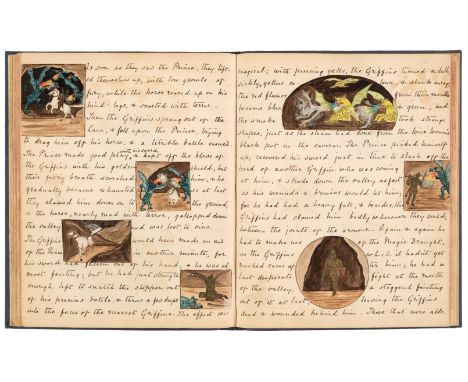 As soon as they saw the Prince, they lift-
ed themselves up, with low growls of
fury, while the horse reared up on his
hind-legs, & snorted with terror.
Then the Griffins sprang out of the
Cave, & fell upon the Prince, trying
to drag him off his horse, & a terrible battle ensued.
with his sword
The Prince made good play, & kept off the blows of
the Griffins with his golden shield, but
their fiery breath scorched him, & he
gradually became exhausted
at last
they clawed him down on to the ground,
& the horse, nearly mad with terror, gallopped down
the valley, & was lost to view.
The Griffins would have made an end
of the Prince in another minute, for
his sword had fallen out of his hand, & he was al-
most fainting; but he had just strength
enough left to snatch the stopper out
of his precious bottle, & threw a few drops
into the faces of the nearest Griffins. The effect was
magical; with piercing yells, the Griffins turned a
sickly, yellow down, & slunk away
the red flames from their mouths
became green, and
the smoke took strange
shapes, just as the steam had done from the
black pot in the cavern. The Prince picked himself
up, recovered his sword just in time to slash off the
head of another Griffin who was coming
at him, & strode down the valley, as fast
as his wounds & bruises would let him,
for he had had a heavy fall, & besides, the
Griffins had clawed him badly wherever they could,
between the joints of the armour. Again & again he
had to make use of the Magic Draught,
as the Griffins which it hadn't yet
reached came after him; he had a
desperate fight at the mouth
of the valley, & staggered fainting
out of it at last, leaving the Griffins
dead & wounded behind him. Those that were able